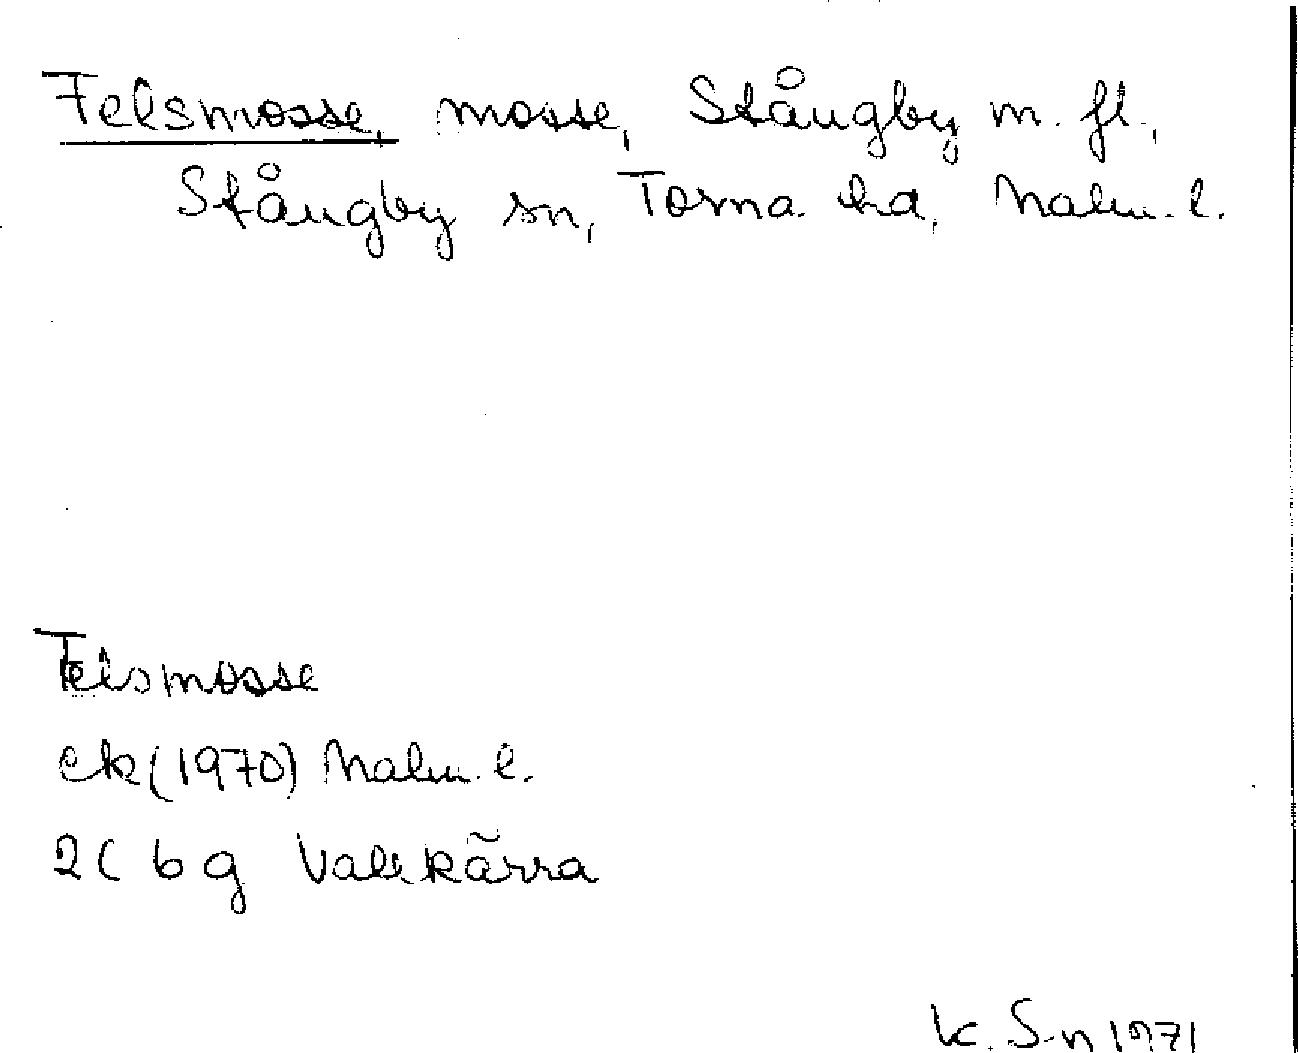 Felsmosse, mosse, Stångby m. fl.,
Stångby sn, Torna hd, Malm. l.
Felsmosse
ek (1970) Malm. l.
2C 6 g Vallkärra
K. S-n 1971